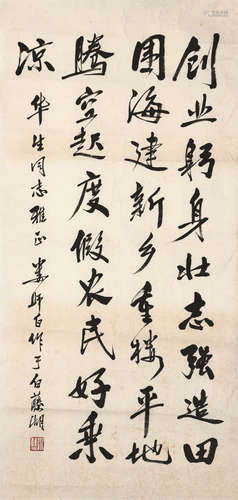 创业躬身壮志强造田
围海建新乡重楼平地
腾空起度假农民好乘
凉 华生同志雅正 娄师白作于白藤湖